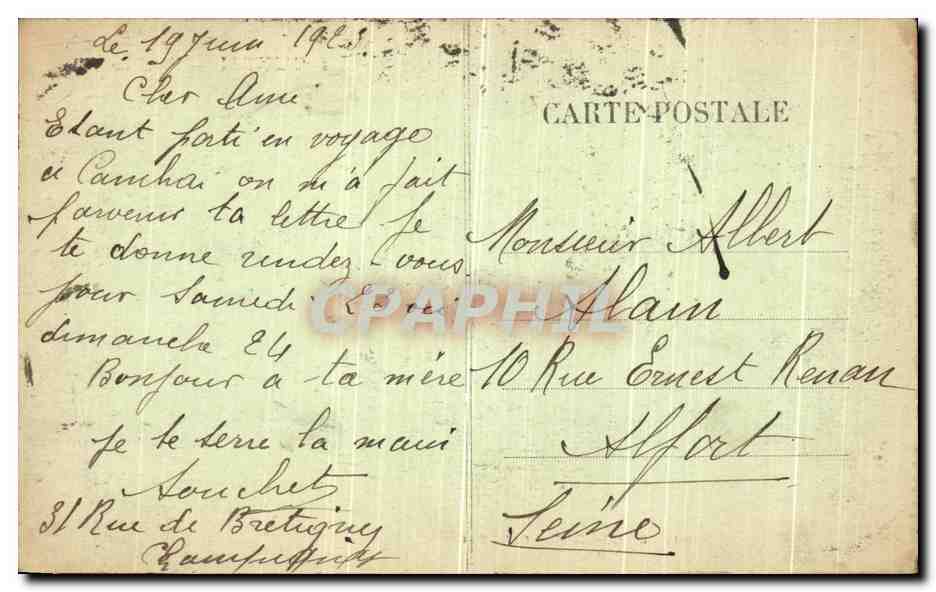 Le 19 Juin 1923
Cher Ami
Etant parti en voyage
a Cambrai on m'a fait
parvenir ta lettre Je
te donne rendez-vous
pour Samedi 23 ou
dimanche 24
Bonjour a ta mère
Je te serre la main
Souchet
31 Rue de Bretigny
CARTE POSTALE
Monsieur Albert
Alain
10 Rue Ernest Renan
Alfort
Seine
CPAPHIL